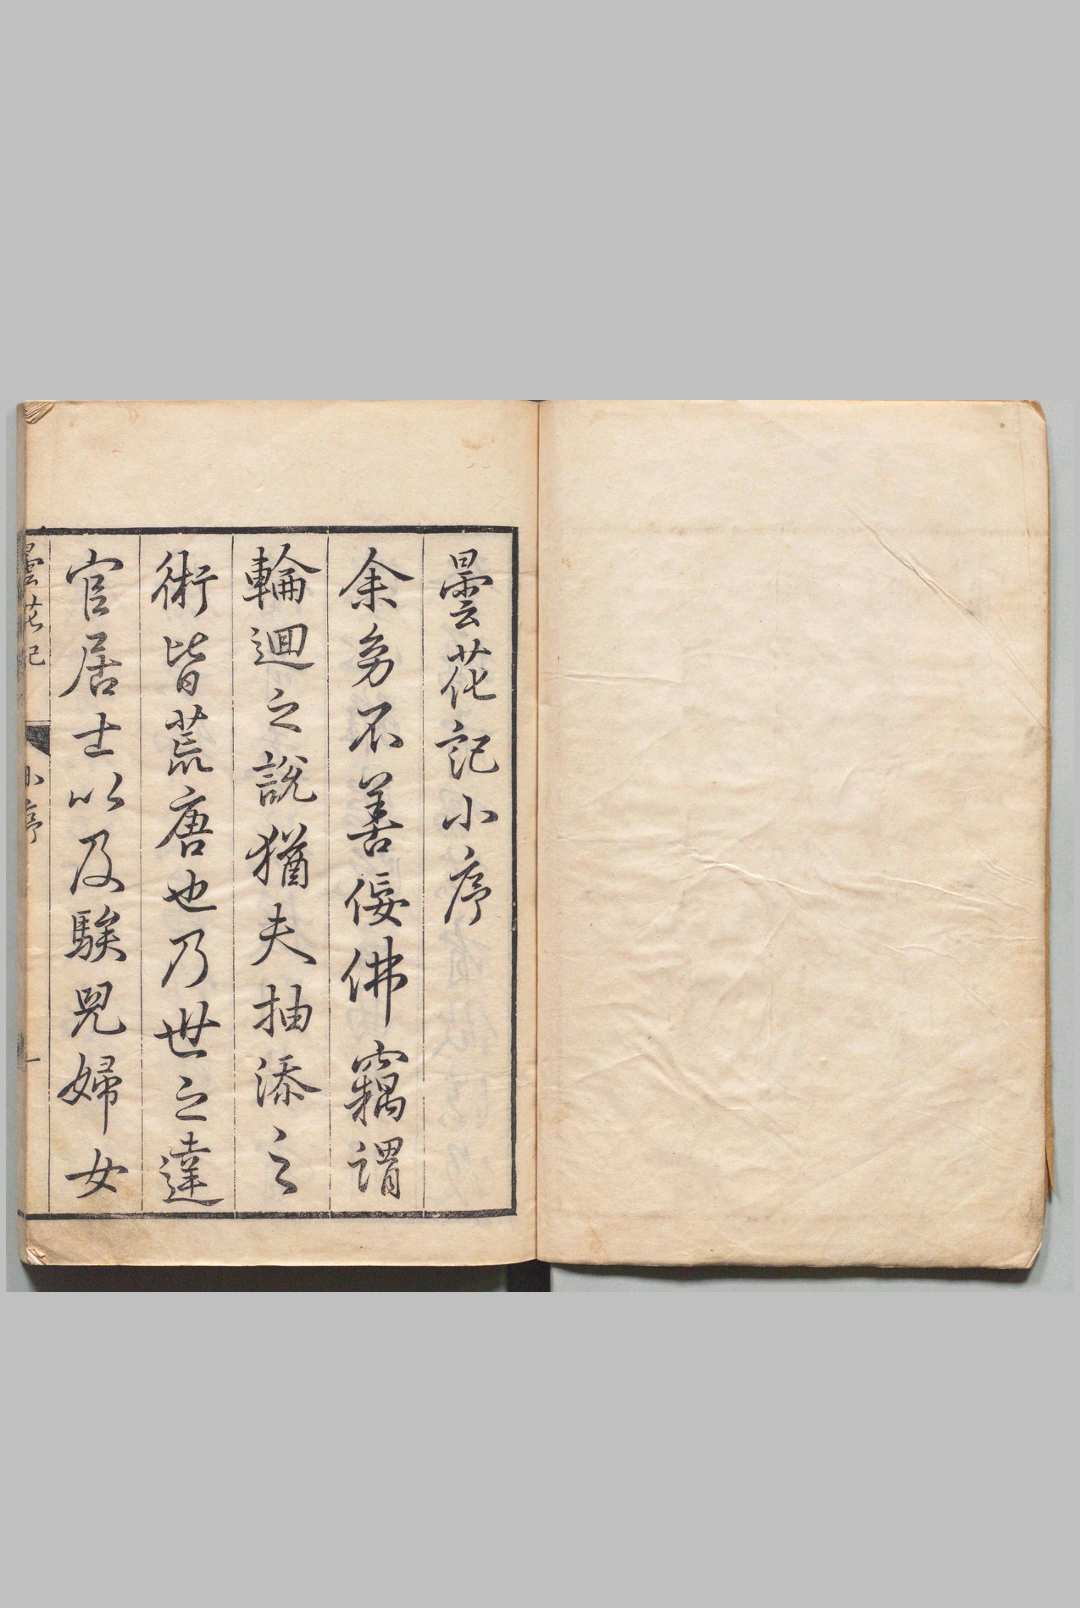 曇花記小序
余不善佞佛竊謂
輪迴之說猶夫抽添之
術皆荒唐也乃世之達
官居士以及騃兒婦女
曇花記 小序 一